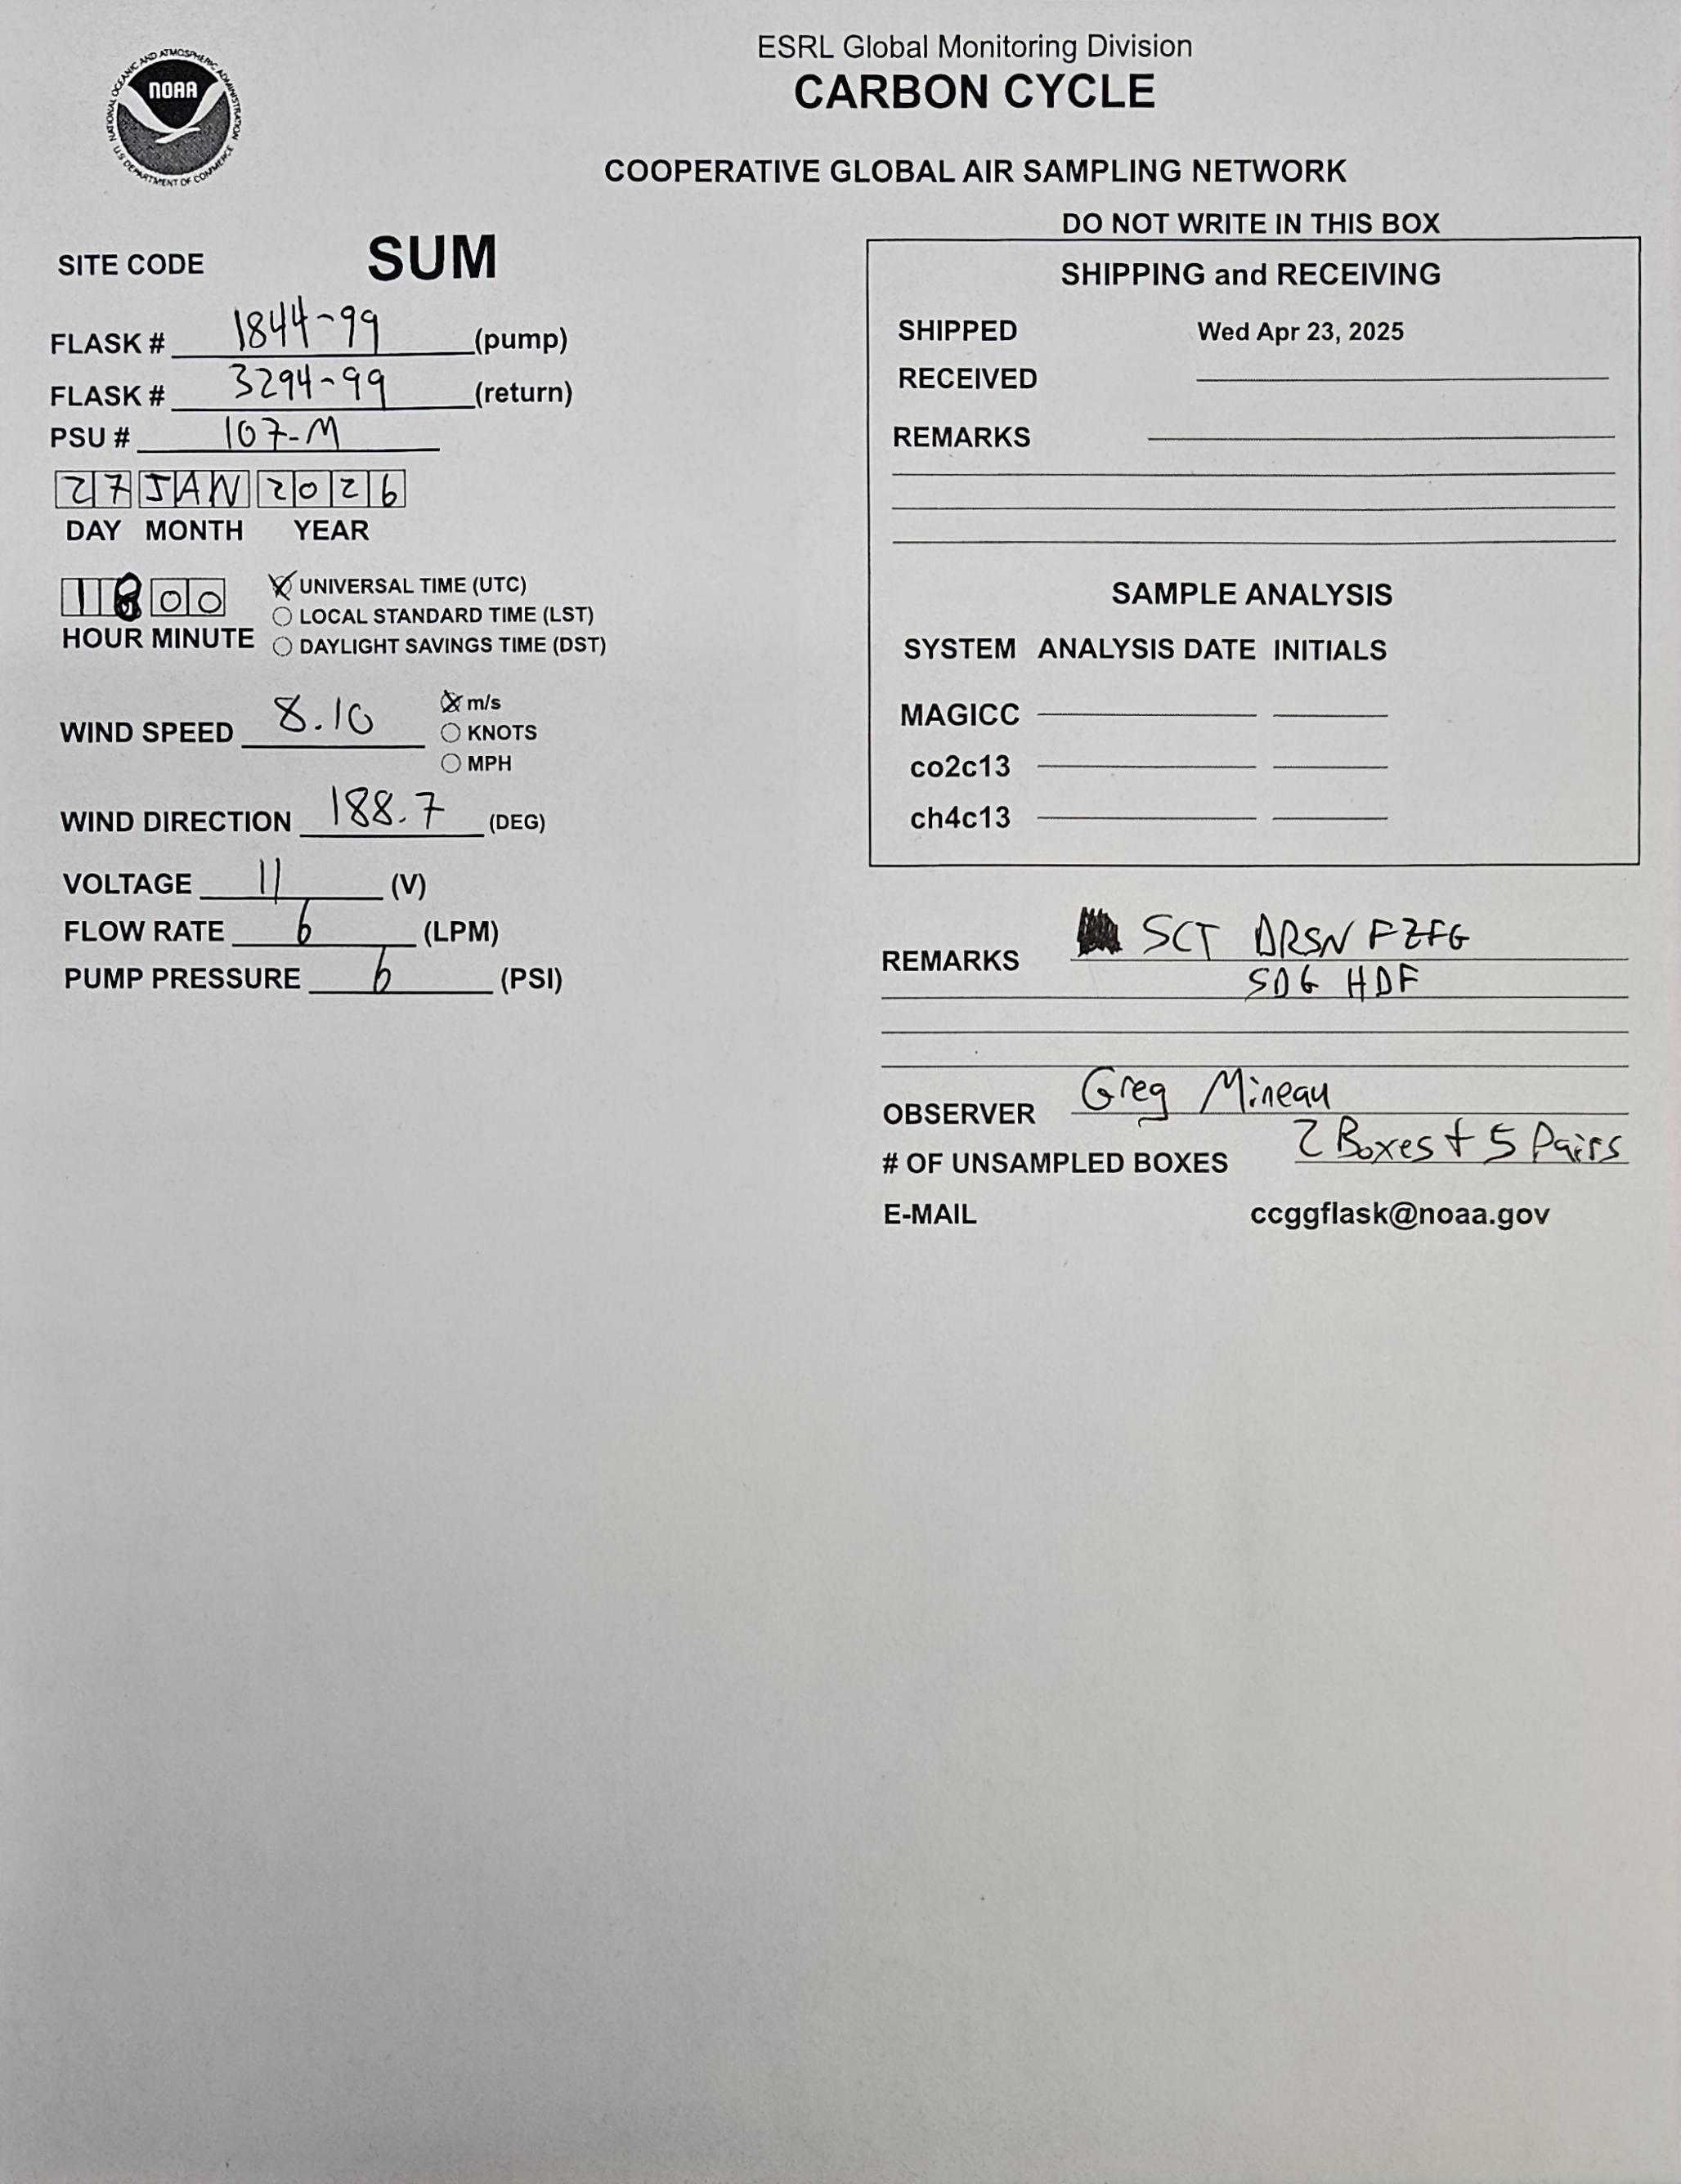 NATIONAL OCEANIC AND ATMOSPHERIC ADMINISTRATION
U.S. DEPARTMENT OF COMMERCE
NOAA
ESRL Global Monitoring Division
CARBON CYCLE
COOPERATIVE GLOBAL AIR SAMPLING NETWORK
SITE CODE SUM
FLASK # 1844-99 (pump)
FLASK # 3294-99 (return)
PSU # 107-M
27 JAN 2026
DAY MONTH YEAR
18 00
HOUR MINUTE
UNIVERSAL TIME (UTC)
LOCAL STANDARD TIME (LST)
DAYLIGHT SAVINGS TIME (DST)
WIND SPEED 8.10
m/s
KNOTS
MPH
WIND DIRECTION 188.7 (DEG)
VOLTAGE 11 (V)
FLOW RATE 6 (LPM)
PUMP PRESSURE 6 (PSI)
DO NOT WRITE IN THIS BOX
SHIPPING and RECEIVING
SHIPPED Wed Apr 23, 2025
RECEIVED
REMARKS
SAMPLE ANALYSIS
SYSTEM ANALYSIS DATE INITIALS
MAGICC
co2c13
ch4c13
REMARKS SCT DRSN FZFG
SDG HDF
OBSERVER Greg Mineau
# OF UNSAMPLED BOXES 2 Boxes + 5 Pairs
E-MAIL ccggflask@noaa.gov